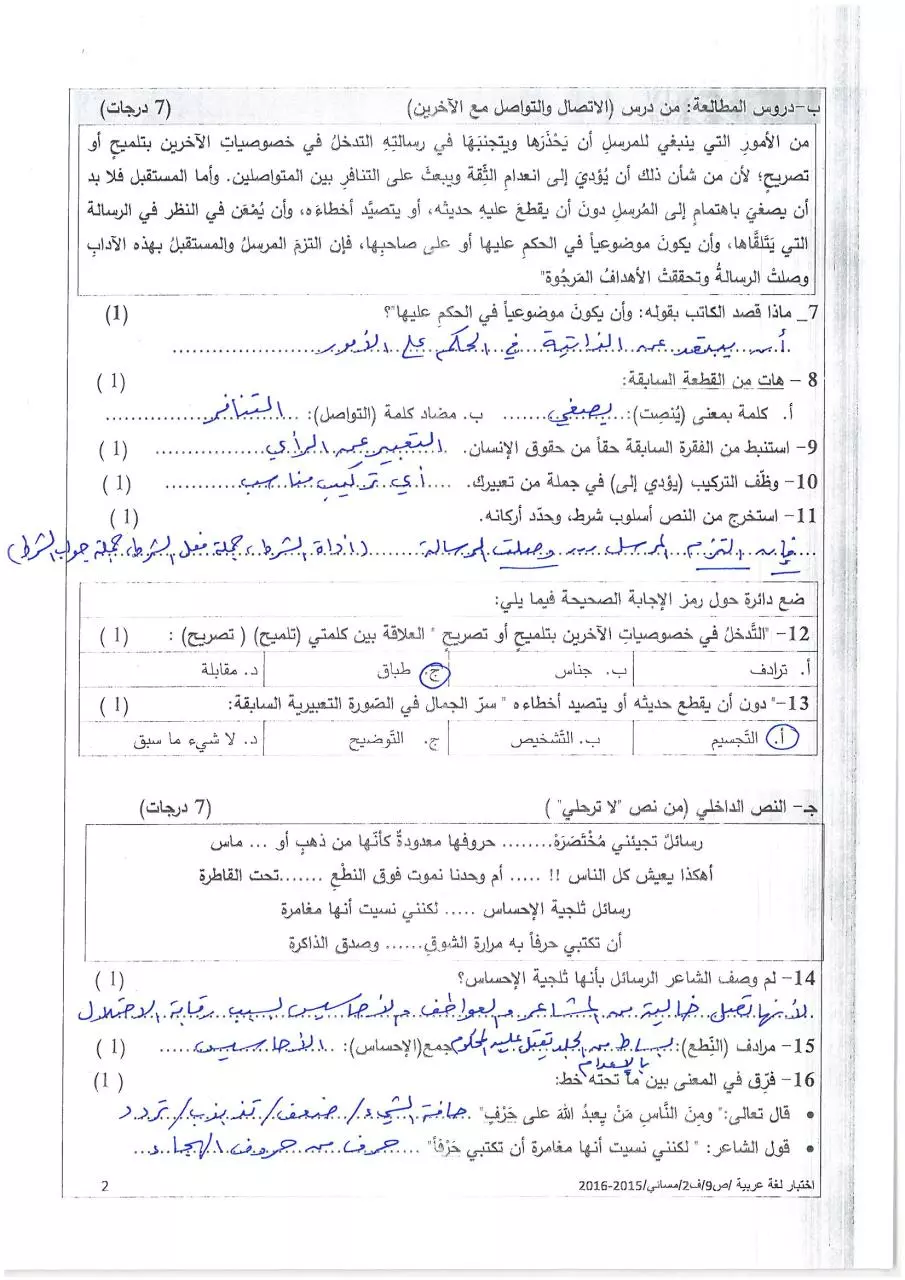 ب-دروس المطالعة: من درس (الاتصال والتواصل مع الآخرين) (7 درجات)
من الأمورِ التي ينبغي للمرسلِ أن يَحْذَرَها ويتجنبَهَا في رسالتِهِ التدخلُ في خصوصياتِ الآخرين بتلميحٍ أو
تصريحٍ؛ لأن من شأن ذلك أن يُؤديَ إلى انعدام الثِّقة ويبعثَ على التنافرِ بين المتواصلين. وأما المستقبل فلا بد
أن يصغيَ باهتمام إلى المُرسلِ دونَ أن يقطعَ عليهِ حديثه، أو يتصيَّد أخطاءَه، وأن يُمْعَن في النظر في الرسالة
التي يَتَلقَّاها، وأن يكونَ موضوعياً في الحكم عليها أو على صاحبِها، فإن التزمَ المرسلُ والمستقبلُ بهذه الآدابِ
وصلتْ الرسالةُ وتحققتْ الأهدافُ المَرجُوة"
7_ ماذا قصد الكاتب بقوله: وأن يكونَ موضوعياً في الحكمِ عليها"؟ (1)
أن يبتعد عن الذاتية في الحكم على الأمور
8 – هات من القطعة السابقة: (1)
أ. كلمة بمعنى (يُنْصِت): يصغي ب. مضاد كلمة (التواصل): التنافر
9- استنبط من الفقرة السابقة حقاً من حقوق الإنسان. التعبير عن الرأي (1)
10- وظّف التركيب (يؤدي إلى) في جملة من تعبيرك. أي تركيب مناسب (1)
11- استخرج من النص أسلوب شرط، وحدّد أركانه. (1)
فإن التزم المرسل ... وصلت الرسالة (أداة الشرط، جملة فعل الشرط، جملة جواب الشرط)
ضع دائرة حول رمز الإجابة الصحيحة فيما يلي:
12- "التَّدخلُ في خصوصياتِ الآخرين بتلميحٍ أو تصريحٍ " العلاقة بين كلمتي (تلميح) ( تصريح) : (1)
أ. ترادف ب. جناس ج. طباق د. مقابلة
13-" دون أن يقطع حديثه أو يتصيد أخطاءه " سرّ الجمال في الصّورة التعبيرية السابقة: (1)
أ. التّجسيم ب. التّشخيص ج. التّوضيح د. لا شيء ما سبق
جـ- النص الداخلي (من نص "لا ترحلي" ) (7 درجات)
رسائلٌ تجيئني مُخْتَصَرَهْ........ حروفها معدودةٌ كأنّها من ذهبٍ أو ... ماس
أهكذا يعيش كل الناس !! ..... أم وحدنا نموت فوق النطْعِ .......تحت القاطرة
رسائل ثلجية الإحساس ..... لكنني نسيت أنها مغامرة
أن تكتبي حرفاً به مرارة الشوقِ...... وصدق الذاكرة
14- لم وصف الشاعر الرسائل بأنها ثلجية الإحساس؟ (1)
لأنها تصل خالية من المشاعر والعواطف والأحاسيس بسبب رقابة الاحتلال
15- مرادف (النّطع): بساط من الجلد يقتل عليه المحكوم بالإعدام جمع(الإحساس): الأحاسيس (1)
16- فرّق في المعنى بين ما تحته خط: (1)
• قال تعالى:" ومِنَ النَّاسِ مَنْ يعبدُ اللهَ على حَرْفٍ" حافة الشيء/ ضعف/ تذبذب/ تردد
• قول الشاعر: " لكنني نسيت أنها مغامرة أن تكتبي حَرْفاً" حرف من حروف الهجاء
اختبار لغة عربية /ص9/ف2/مسائي/2015-2016 2